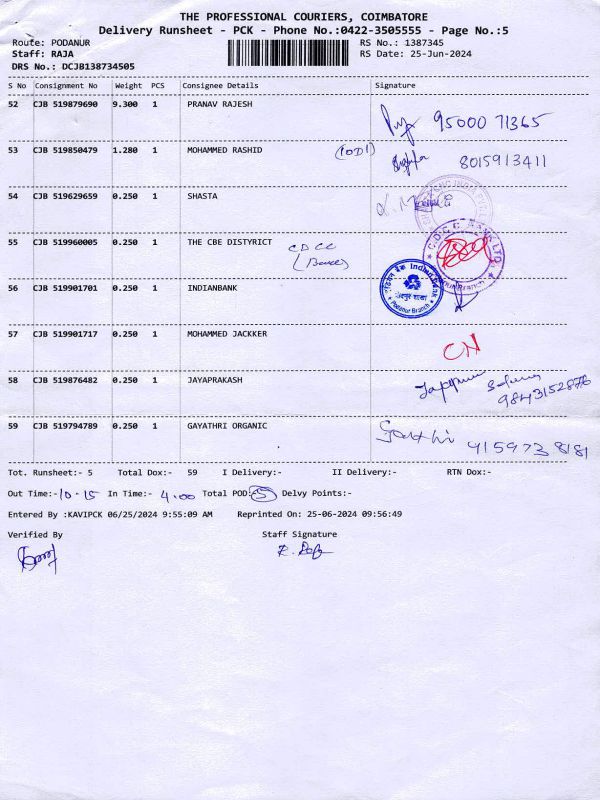 THE PROFESSIONAL COURIERS, COIMBATORE
Delivery Runsheet - PCK - Phone No.:0422-3505555 - Page No.:5
Route: PODANUR RS No.: 1387345
Staff: RAJA RS Date: 25-Jun-2024
DRS No.: DCJB138734505
S No Consignment No Weight PCS Consignee Details Signature
52 CJB 519879690 9.300 1 PRANAV RAJESH 95000 71365
53 CJB 519850479 1.280 1 MOHAMMED RASHID 8015913411
54 CJB 519629659 0.250 1 SHASTA
55 CJB 519960005 0.250 1 THE CBE DISTYRICT CDCC
C.D.C.C. BANK LTD.
56 CJB 519901701 0.250 1 INDIANBANK
Indian Bank
Podanur Branch
57 CJB 519901717 0.250 1 MOHAMMED JACKKER CN
58 CJB 519876482 0.250 1 JAYAPRAKASH 9843152876
59 CJB 519794789 0.250 1 GAYATHRI ORGANIC 9159738181
Tot. Runsheet:- 5 Total Dox:- 59 I Delivery:- II Delivery:- RTN Dox:-
Out Time:-10-15 In Time:- 4.00 Total POD:-5 Delvy Points:-
Entered By :KAVIPCK 06/25/2024 9:55:09 AM Reprinted On: 25-06-2024 09:56:49
Verified By Staff Signature